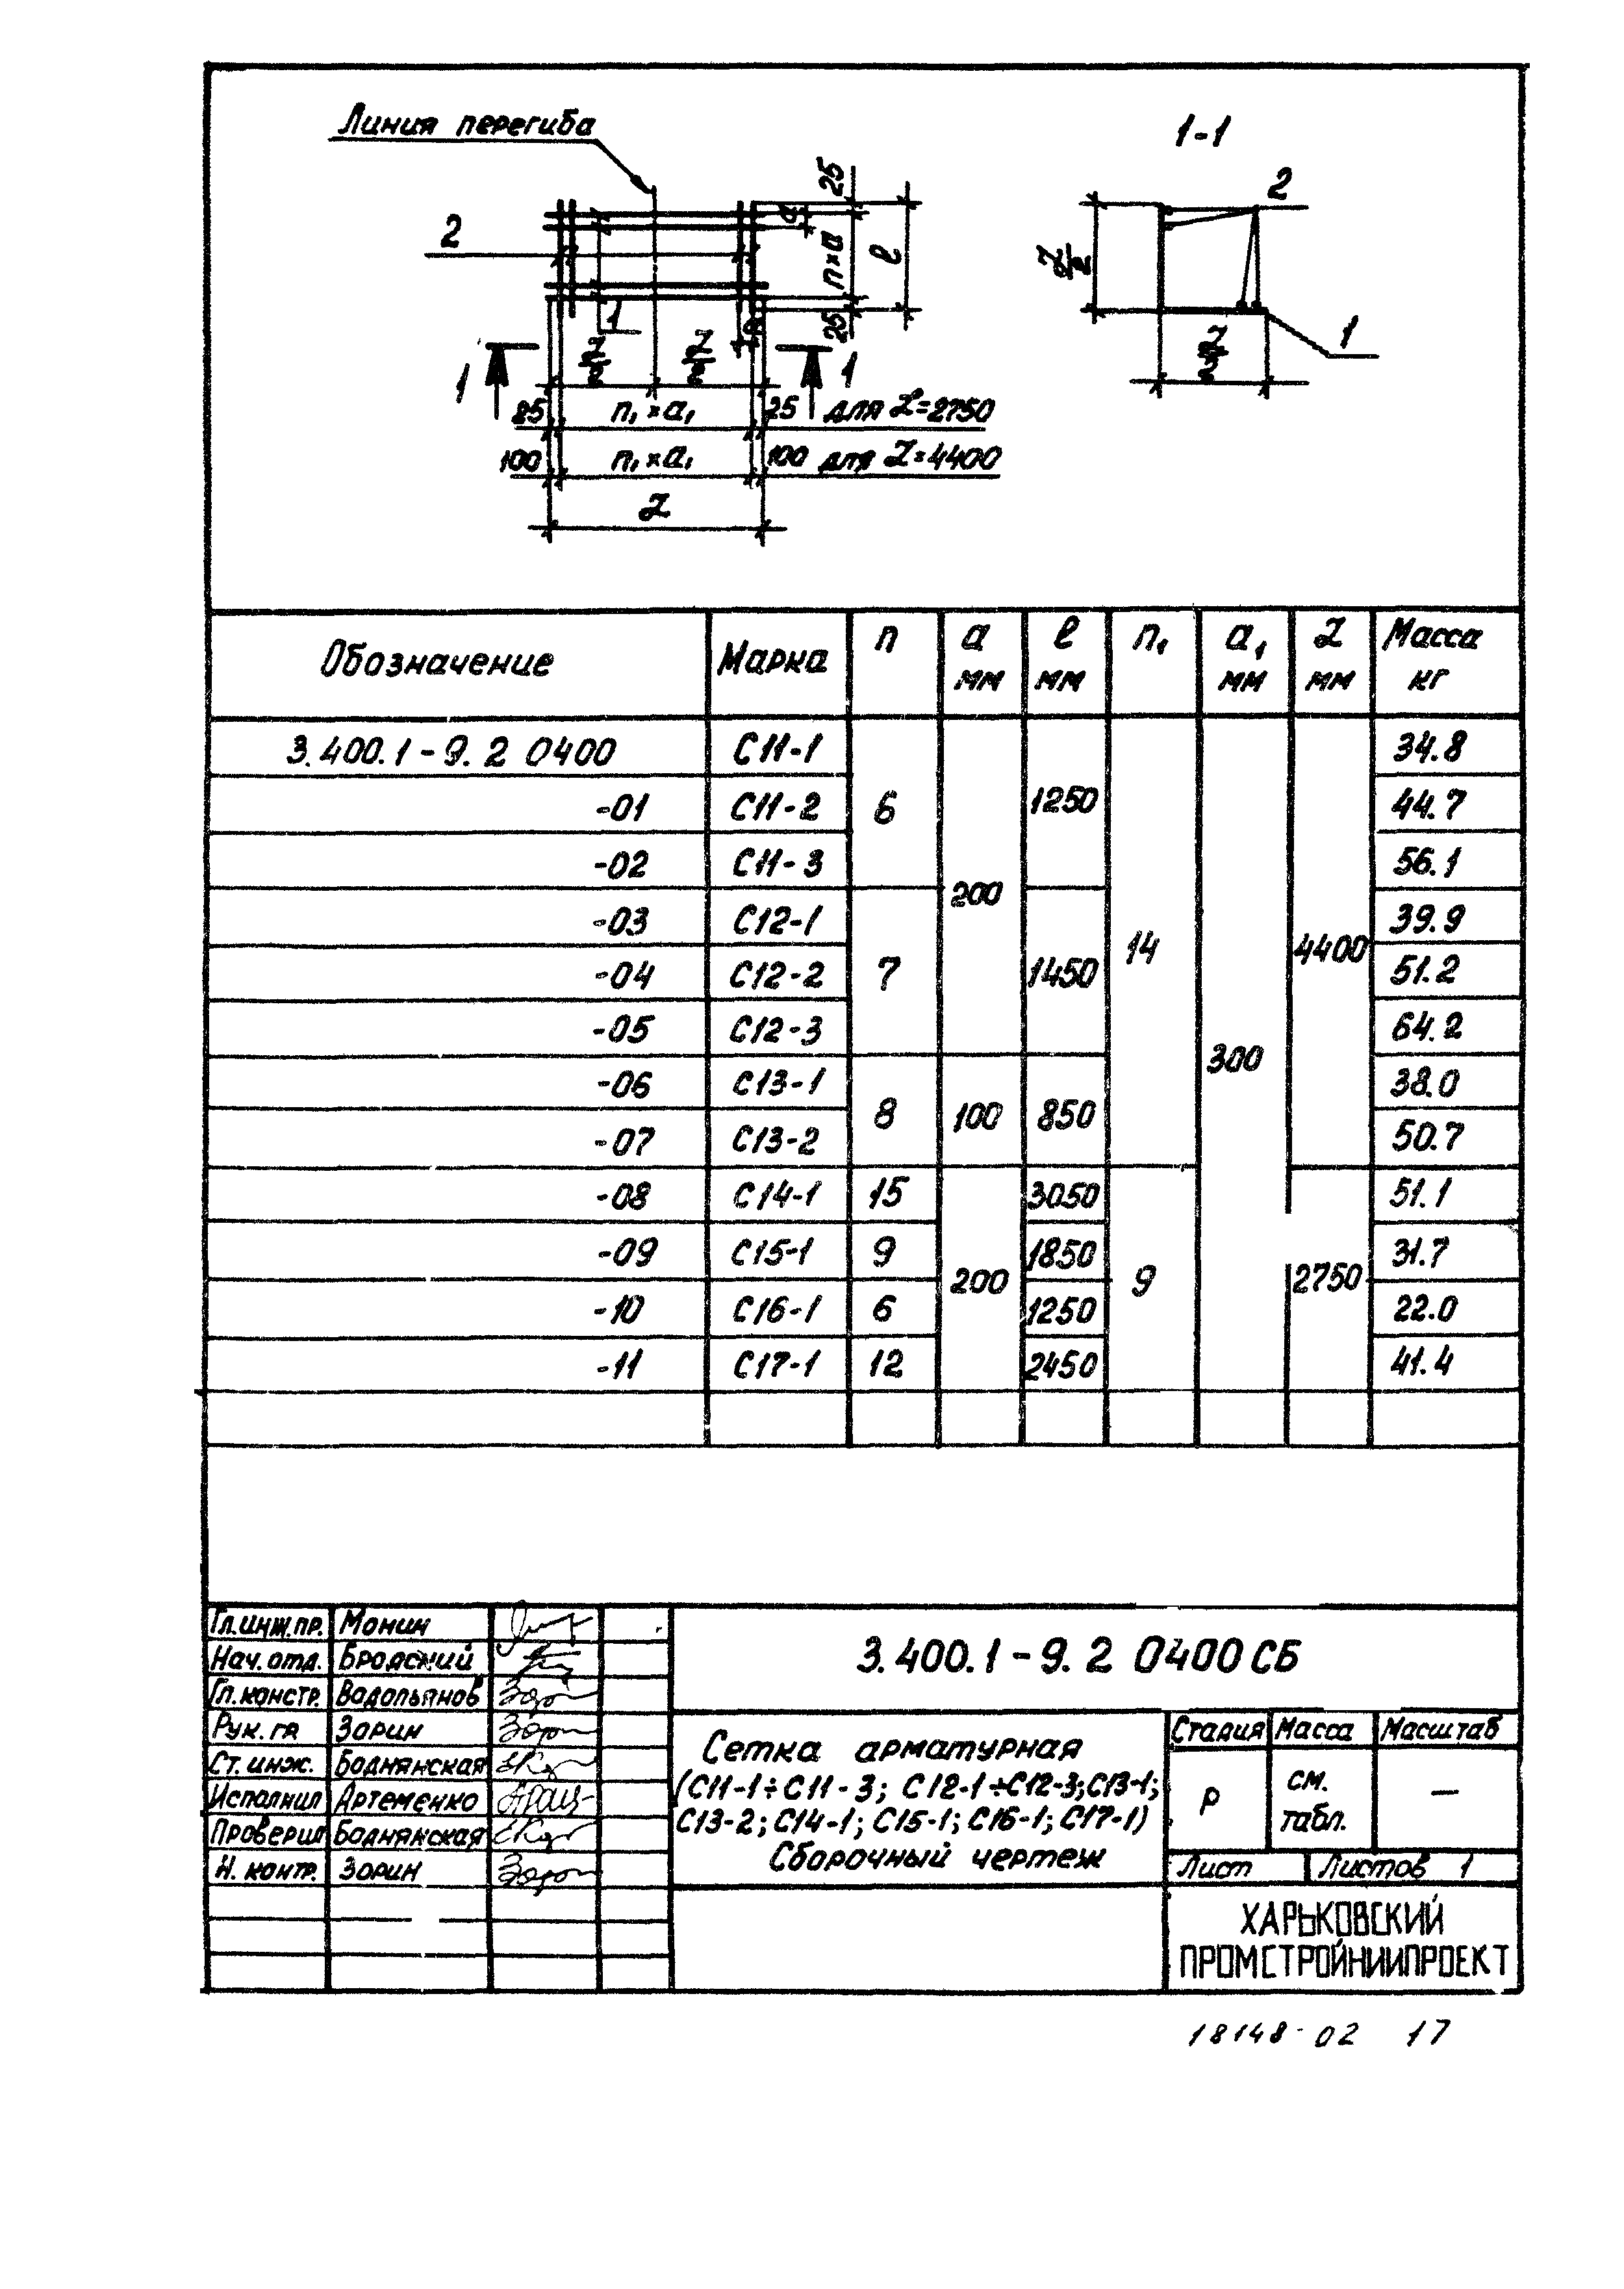 Линия перегиба
1-1
2
25
a
n×a
ℓ
25
1
a₁
L/2
L/2
1
1
25 n₁×a₁ 25 для L=2750
100 n₁×a₁ 100 для L=4400
L
2
L/2
1
L/2
Обозначение Марка n a мм ℓ мм n₁ a₁ мм L мм Масса кг
3.400.1-9.2 0400 С11-1 34.8
-01 С11-2 6 1250 44.7
-02 С11-3 56.1
200
-03 С12-1 39.9
14 4400
-04 С12-2 7 1450 51.2
-05 С12-3 64.2
300
-06 С13-1 38.0
8 100 850
-07 С13-2 50.7
-08 С14-1 15 3050 51.1
-09 С15-1 9 1850 31.7
200 9 2750
-10 С16-1 6 1250 22.0
-11 С17-1 12 2450 41.4
Гл.инж.пр. Монин
Нач.отд. Бродский
Гл.констр. Водопьянов
Рук.гр Зорин
Ст.инж. Боднянская
Исполнил Артеменко
Проверил Боднянская
Н.контр. Зорин
3.400.1-9.2 0400 СБ
Сетка арматурная
(С11-1÷С11-3; С12-1÷С12-3; С13-1;
С13-2; С14-1; С15-1; С16-1; С17-1)
Сборочный чертеж
Стадия Масса Масштаб
Р см. табл. —
Лист Листов 1
ХАРЬКОВСКИЙ
ПРОМСТРОЙНИИПРОЕКТ
18148-02 17